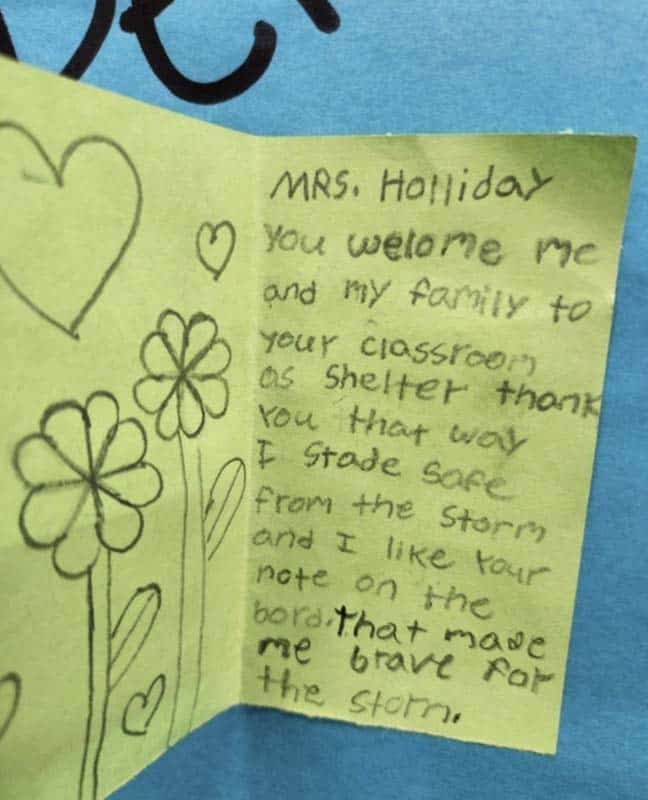 MRS. Holliday
You welome me
and my family to
your classroom
as shelter thank
You that way
I stade safe
from the storm
and I like your
note on the
bord. that made
me brave for
the storm.